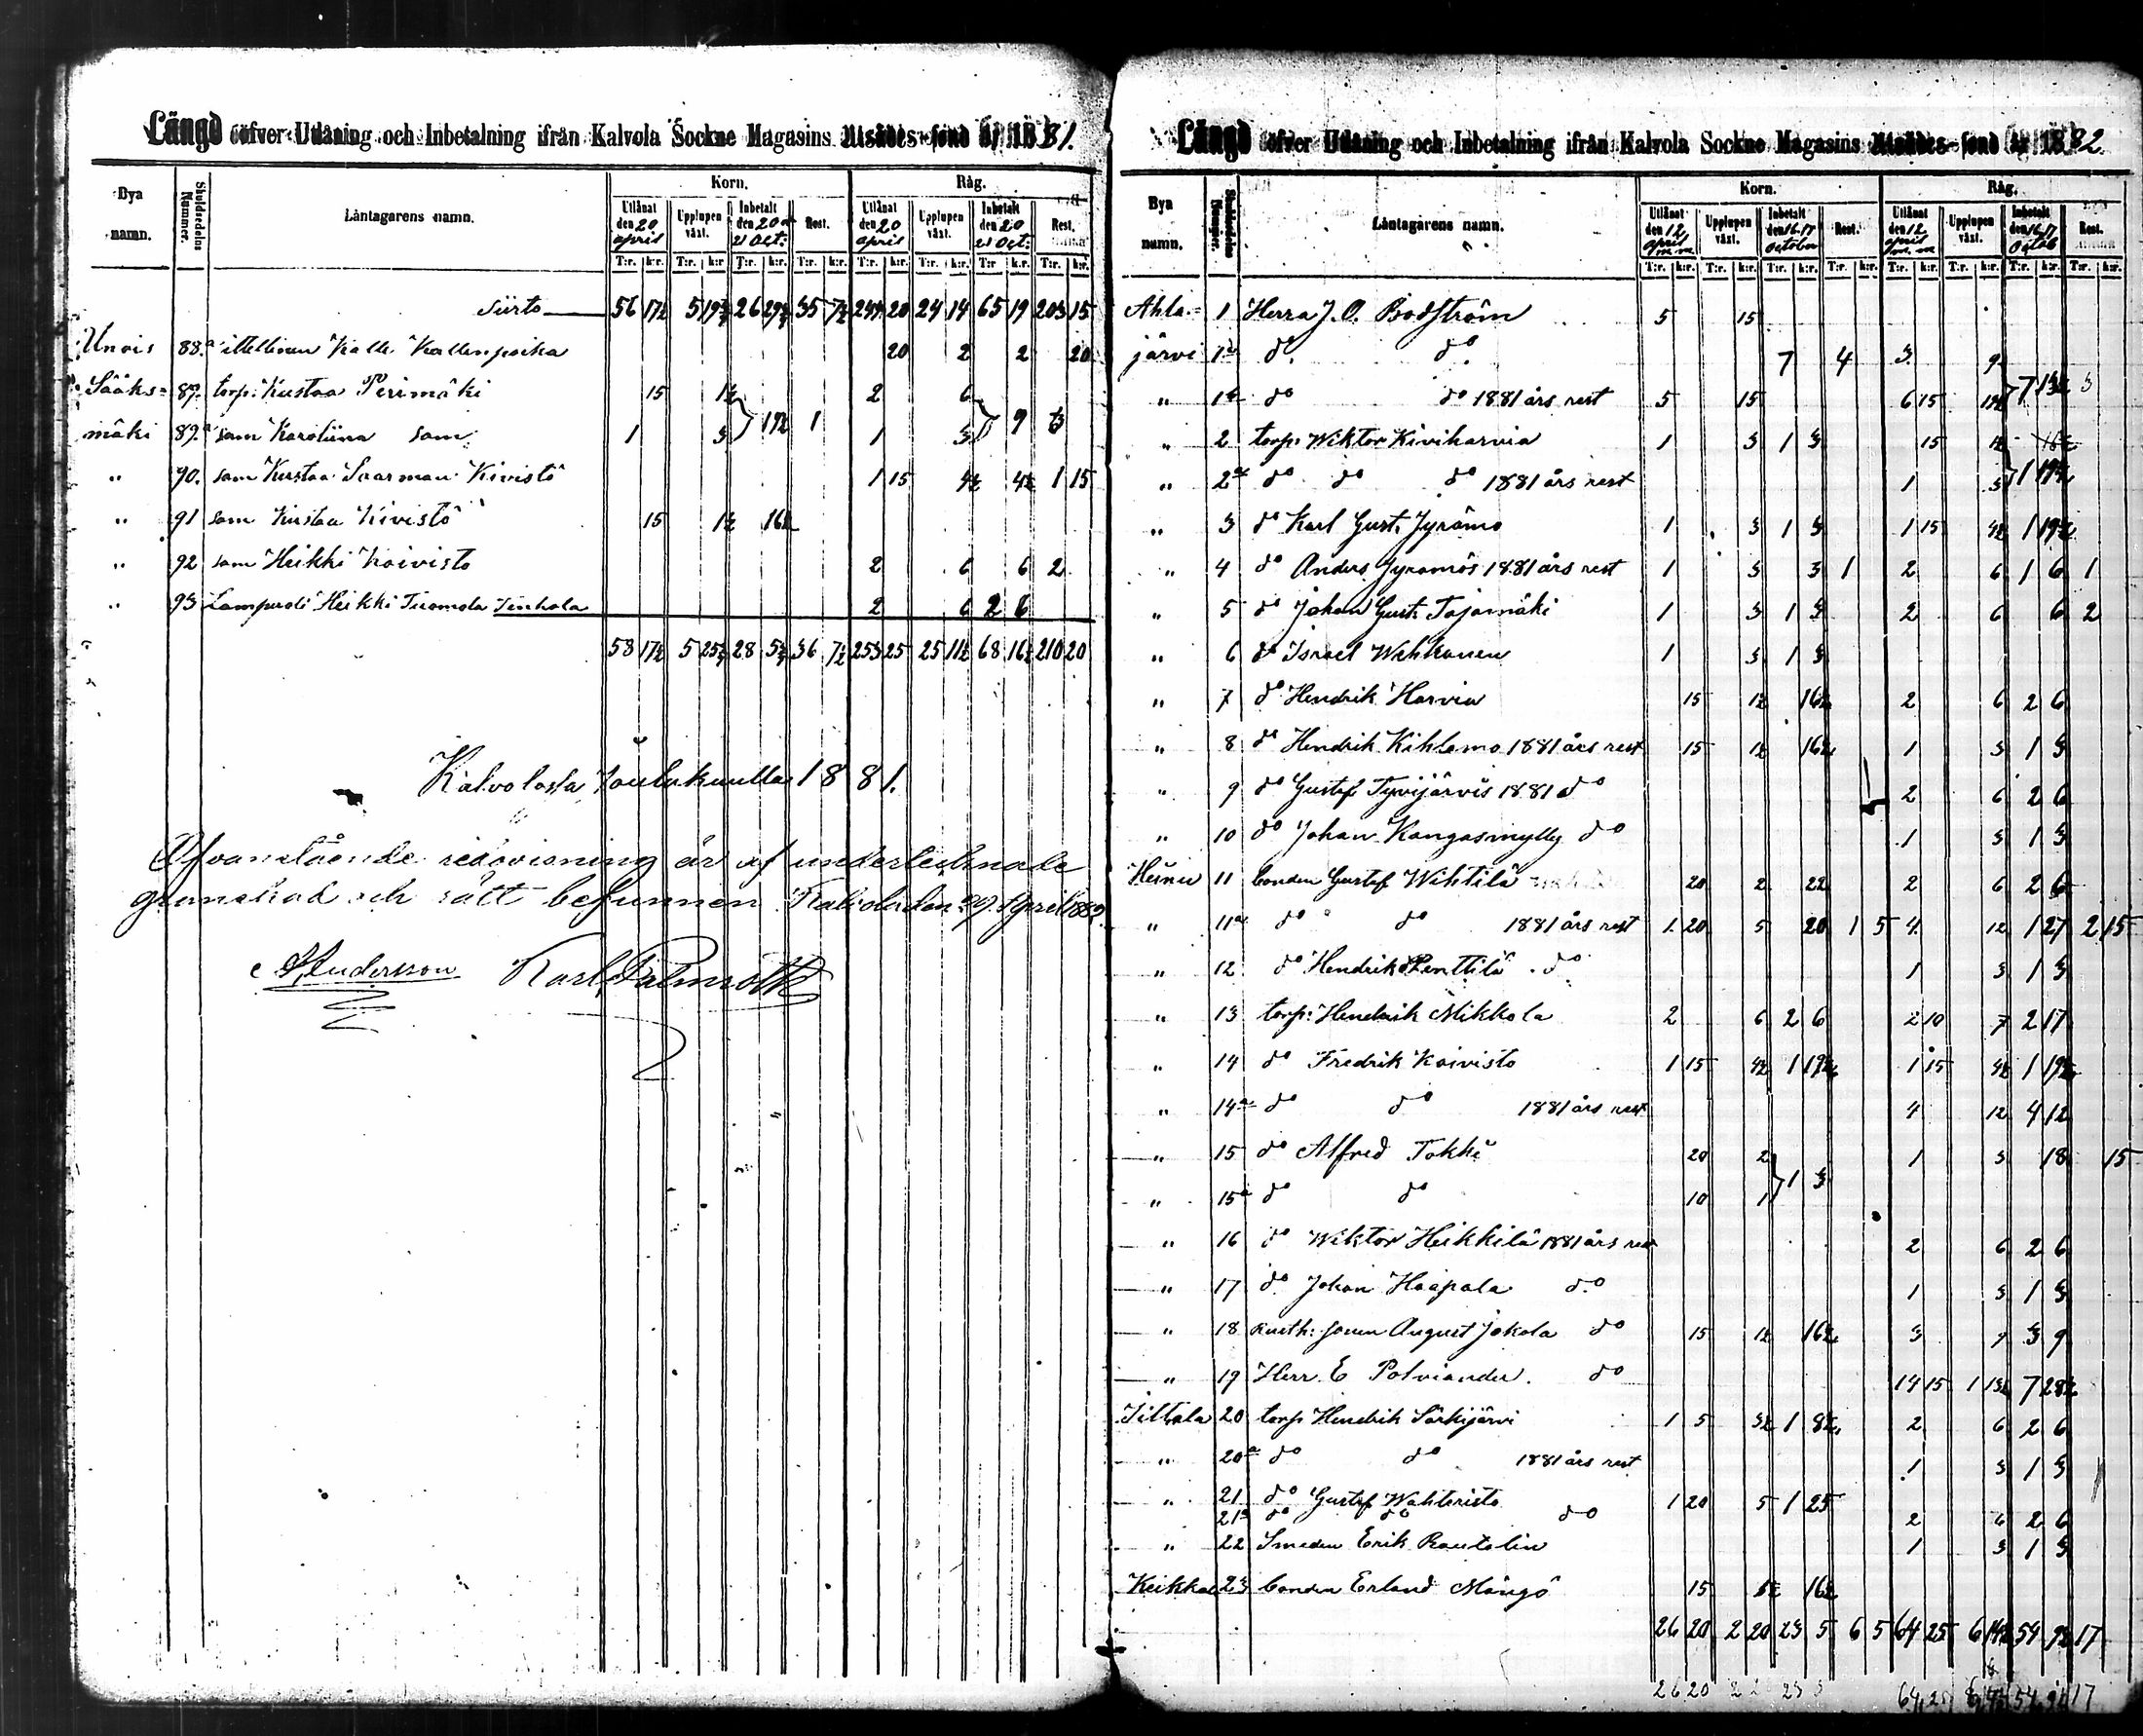 Längd öfver Utlåning och Inbetalning ifrån Kalvola Sockne Magasins Utsädes-fond år 1881.
Bya namn. Skuldsedelns Nummer. Låntagarens namn. Korn. Råg.
Utlånat den 20 april Upplupen växt. Inbetalt den 20 o 21 Oct: Rest. Utlånat den 20 april Upplupen växt. Inbetalt den 20 21 Oct: Rest.
T:r. k:r. T:r. k:r T:r. k:r. T:r. k:r. T:r. k:r. T:r. k:r. T:r k:r. T:r. k:r.
Siirto 56 17½ 5 19¾ 26 29¾ 35 7½ 244 20 24 14 65 19 203 15
Unois 88. Mellinen Kalle Kallenpoika 20 2 2 20
Sääks= 87. torp: Kustaa Perimäki 15 1½ 2 6
mäki 89. sam Karoliina sam 1 3 19½ 1 1 3 9 3
" 90. sam Kustaa Saarman Kivistö 1 15 4½ 4½ 1 15
" 91 sam Kustaa Kivistö 15 1½ 16½
" 92 sam Heikki Koivisto 2 6 6 2
" 93 Lampuodi Heikki Tuomola Tenhola 2 6 2 6
58 17½ 5 25¾ 28 5¾ 36 7½ 253 25 25 11½ 68 16½ 210 20
Kalvolasta Joulukuulla 1881.
Ofvanstående redovisning är af undertecknade
granskad och rätt befunnen. Kalvola den 29 April 1882.
Andersson Karl Palmroth
Längd öfver Utlåning och Inbetalning ifrån Kalvola Sockne Magasins Utsädes-fond år 1882
Bya namn. Skuldsedelns Nummer. Låntagarens namn. Korn. Råg.
Utlånat den 12 april Upplupen växt. Inbetalt den 16.17 October Rest. Utlånat den 12 april Upplupen växt. Inbetalt den 16.17 Octob Rest.
T:r. k:r. T:r. k:r. T:r. k:r. T:r. k:r. T:r. k:r. T:r. k:r. T:r. k:r. T:r. k:r.
Ahla= 1 Herra J. O. Bodström 5 15
järvi 1a do. do. 7 4 3 9
" 1b do do 1881 års rest 5 15 6 15 19½ 7 13½ 3
" 2 torp: Wiktor Kiviharvia 1 3 1 3 15 1½
" 2a do do do 1881 års rest 1 3 1 19½
" 3 do Karl Gust. Jyrämö 1 3 1 3 1 15 4½ 1 19½
" 4 do Anders Jyrämös 1881 års rest 1 3 3 1 2 6 1 6 1
" 5 do Johan Gust. Tajamäki 1 3 1 3 2 6 6 2
" 6 do Israel Wehkanen 1 3 1 3
" 7 do Hendrik Harvia 15 1½ 16½ 2 6 2 6
" 8 do Hendrik Kihlamo 1881 års rest 15 1½ 16½ 1 3 1 3
" 9 do Gustaf Tyvijärvis 1881 do 2 6 2 6
" 10 do Johan Kangasmylly do 1 3 1 3
Heinu 11 bonden Gustaf Wihtilä 20 2 22 2 6 2 6
" 11a do do 1881 års rest 1 20 5 20 1 5 4 12 1 27 2 15
" 12 do Hendrik Penttilä do 1 3 1 3
" 13 torp: Hendrik Mikkola 2 6 2 6 2 10 7 2 17
" 14 do Fredrik Koivisto 1 15 4½ 1 19½ 1 15 4½ 1 19½
" 14a do do 1881 års rest 4 12 4 12
" 15 do Alfred Tokki 20 2 1 3 18 15
" 15a do do 10 1 1 3
" 16 do Wiktor Heikkilä 1881 års rest 2 6 2 6
" 17 do Johan Haapala do 1 3 1 3
" 18 August Jokola do 15 1½ 16½ 3 9 3 9
" 19 Herr E Polviander. do 14 15 1 13½ 7 28½
Iittala 20 torp Hendrik Särkijärvi 1 5 3½ 1 8½ 2 6 2 6
" 20a do do 1881 års rest 1 3 1 3
" 21 do Gustaf Wahteristo 1 20 5 1 25
21a do do do 2 6 2 6
" 22 Smeden Erik Rautalin 1 3 1 3
Keikkala 23 bonden Erland Mängö 15 1½ 16½
26 20 2 20 23 5 6 5 64 25 6 14½ 54 9½ 17
26 20 2 2 23 5 64 25 6 14½ 54 9½ 17